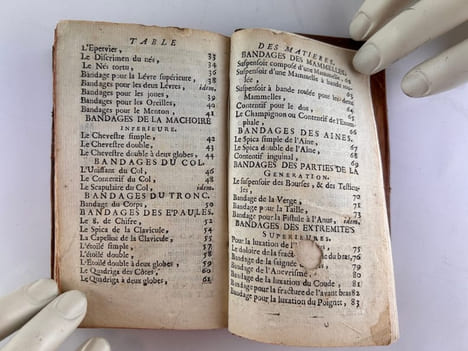 TABLE
L'Epervier, 33
Le Discrimen du nés, 35
Le Nés tortu, 34
Bandage pour la Lévre supérieure, 36
Bandages pour les deux Lévres, idem.
Bandages pour les joues, 39
Bandages pour les Oreilles, 40
Bandages pour le Menton, 41
BANDAGES DE LA MACHOIRE
INFERIEURE.
Le Chevestre simple, 42
Le Chevestre double, 43
Le Chevestre double à deux globes, 44
BANDAGES DU COL
L'Unissant du Col, 46
Le Contentif du Col, 48
Le Scapulaire du Col, idem
BANDAGES DU TRONC.
Bandage du Corps, 50
BANDAGES DES EPAULES.
Le 8. de Chifre, 52
Le Spica de la Clavicule, 54
La Capeline de la Clavicule, 55
L'étoile simple, 57
L'étoile double, 58
L'étoile double à deux globes, 59
Le Quadriga des Côtes, 60
Le Quadriga à deux globes, 61
DES MATIERES.
BANDAGES DES MAMMELLES.
Suspensoir composé d'une Mammelle, 64
Suspensoir d'une Mammelle à bande
sée,
Suspensoir à bande roulée pour les deux
Mammelles,
Contentif pour le dos, 66
Le Champignon ou Contentif de l'Exom-
phale,
BANDAGES DES AINES.
Le Spica simple de l'Aine,
Le Spica double de l'Aine,
Contentif inguinal, 69
BANDAGES DES PARTIES DE LA
GENERATION.
Le suspensoir des Bourses, & des Testicu-
les, 70
Bandage de la Verge, 71
Bandage pour la Taille, 73
Bandage pour la Fistule à l'Anus, idem.
BANDAGES DES EXTREMITE'S
SUPERIEURES.
Pour la luxation de l' 75
Le doloire de la fract du bras, 76
Bandage de la saignée 77
Bandage de l'Anevrisme, 80
Bandage de la luxation du Coude, 81
Bandage pour la fracture de l'avant bras 82
Bandage pour la luxation du Poignet, 83